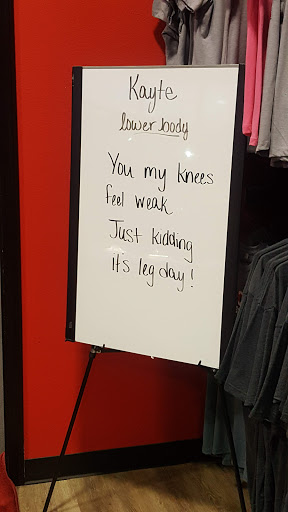 Kayte
lower body
You my knees
feel weak
Just kidding
It's leg day!